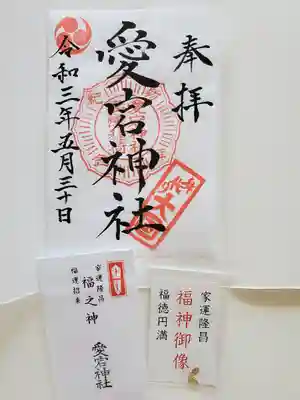 奉拝
愛宕神社
令和三年五月三十日
家運隆昌
福運招来
福之神
愛宕神社
家運隆昌
福神御像
福徳円満